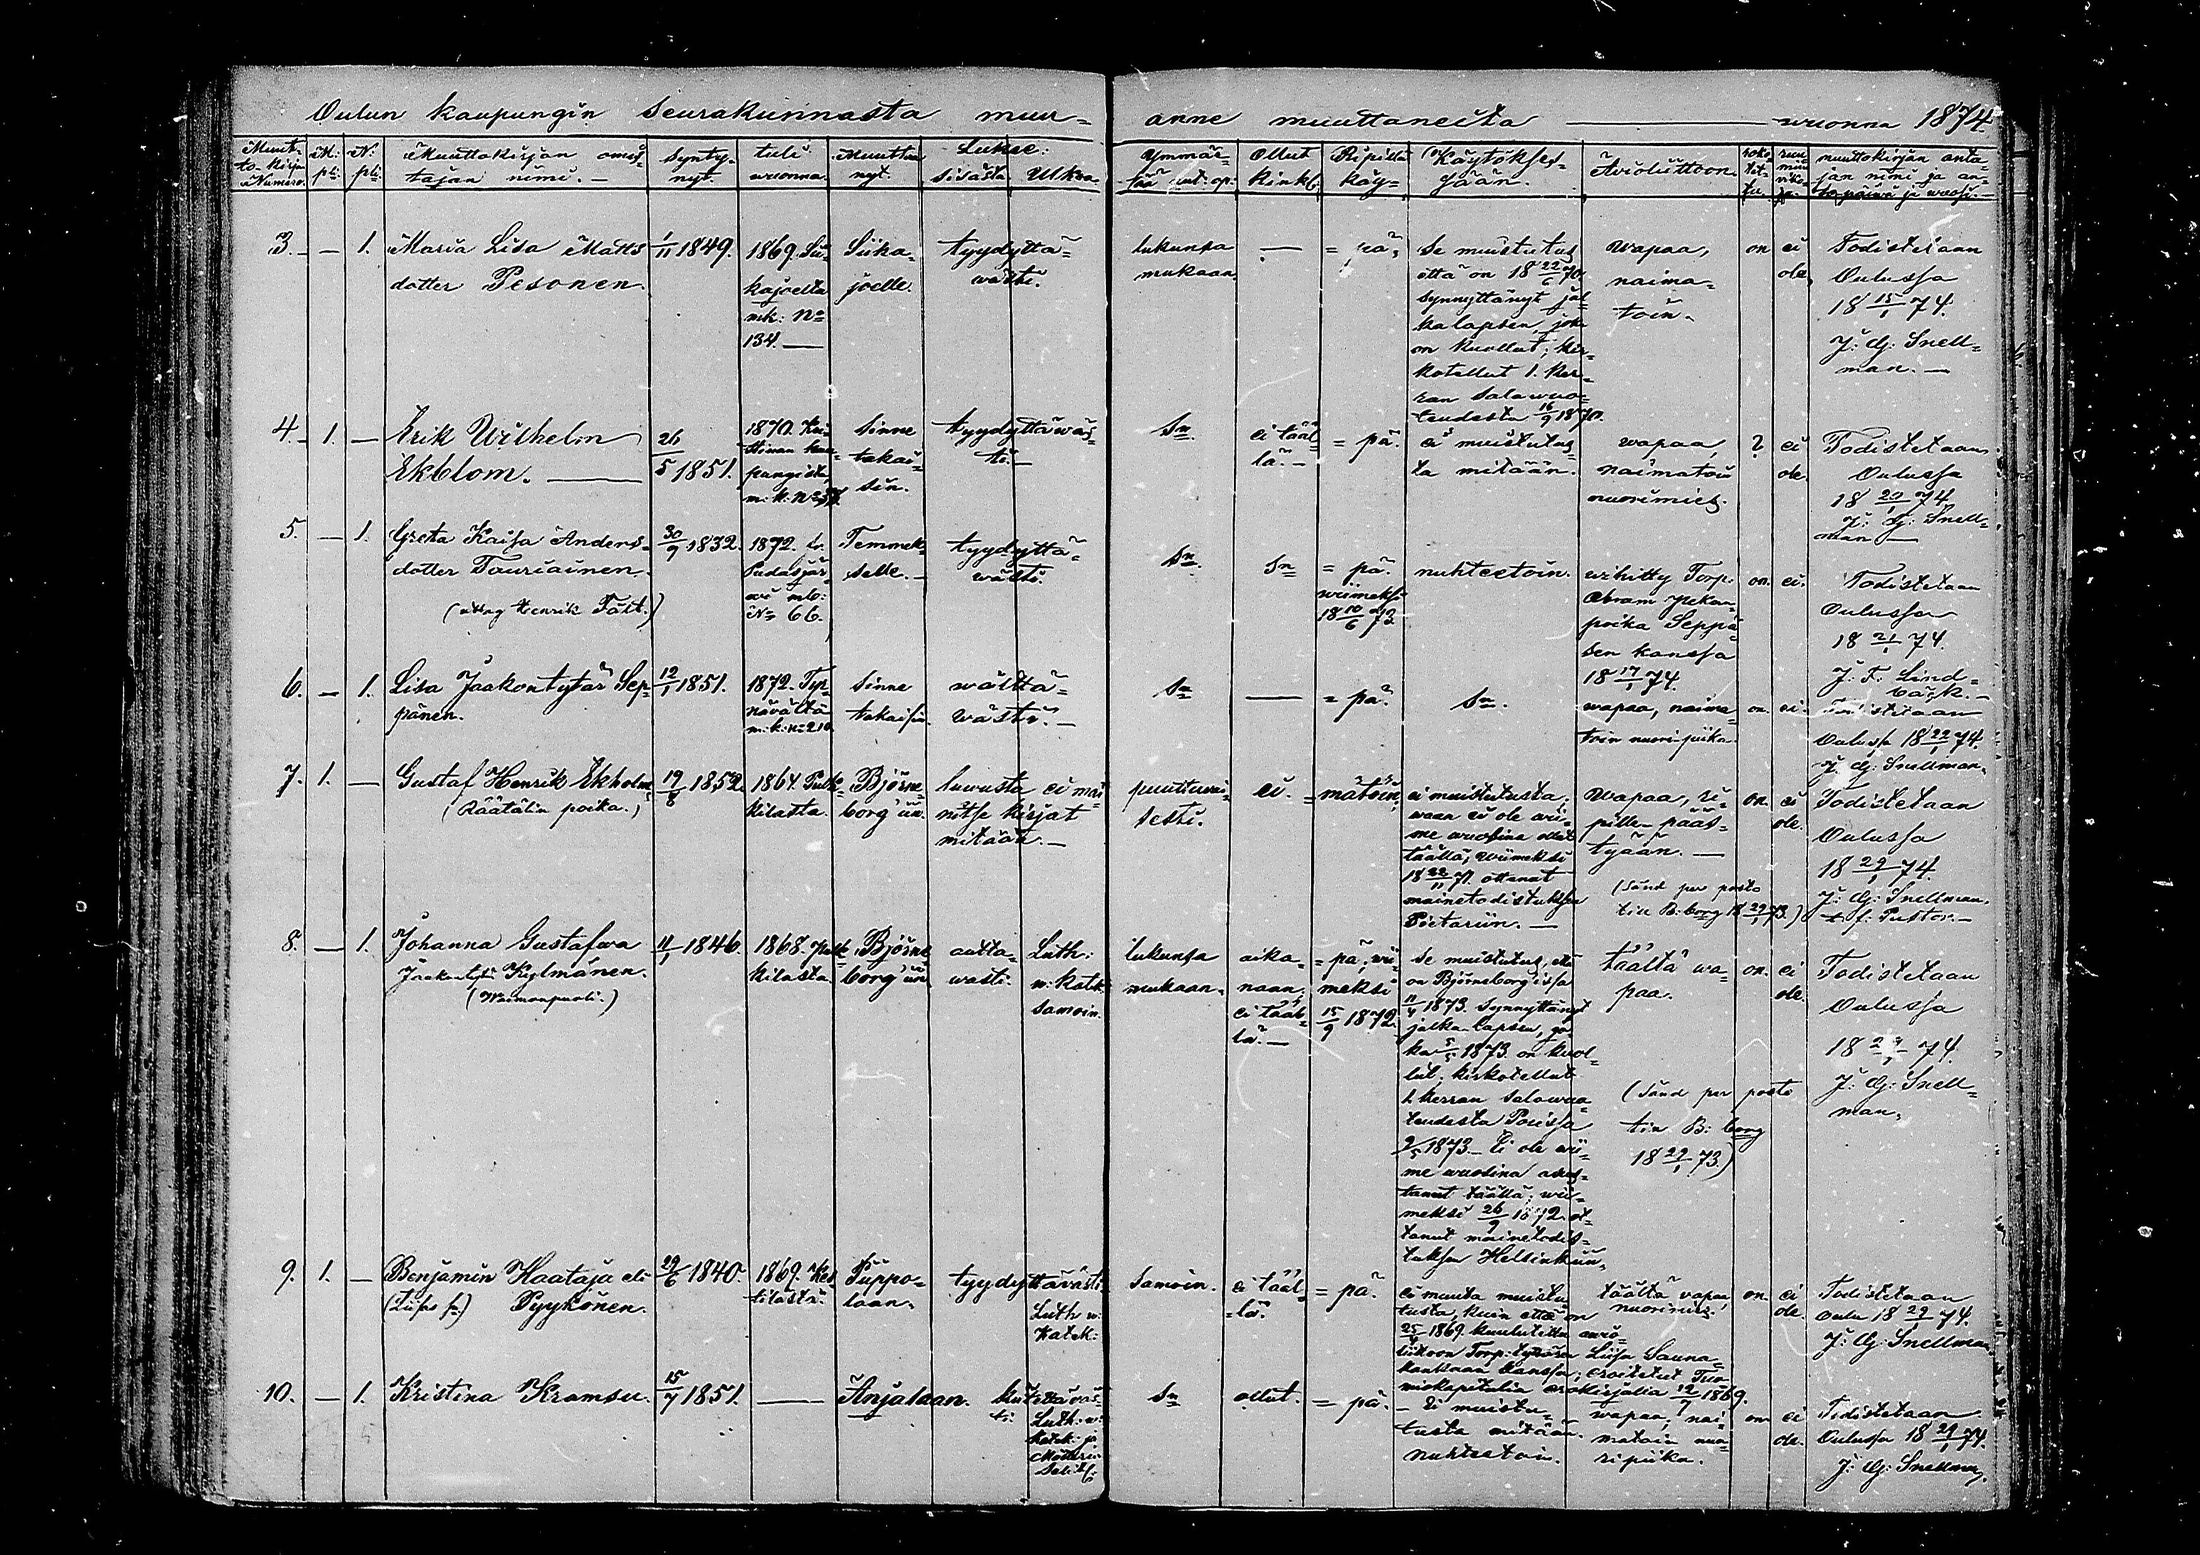 Oulun kaupungin seurakunnasta muu= anne muuttaneita wuonna 1874.
Muut= to-kirjan Numero. M: pli: N: pli: Muuttokirjan omis= tajan nimi. — Synty= nyt. tuli wuonna. Muuttan nyt. Lukee: sisästä Ulkoa.
Ymmär= Ollut kinkl. Ripillä käy= Käytökses= sään. Avioliittoon. roko= tet= tu. muuttokirjan anta= jan nimi ja an= topäiwä ja wuosi. —
3. — 1. Maria Lisa Matts
dotter Pesonen.
1/11 1849.
1869. Sii=
kajoelta
mk: No
134. —
Siika=
joelle.
tyydyttä=
wästi.
lukunsa
mukaan.
—
= pä;
Se muistutus
että on 18 22/6 70
synnyttänyt jal=
kalapsen, joka
on kuollut; kir=
kotellut 1. ker=
ran salawuo=
teudesta 16/9 1870.
wapaa,
naima=
toin.
on
ei
ole,
Todistetaan
Oulussa
18 15/1 74.
J: G: Snell=
man. —
4. 1. — Erik Wilhelm
Ekblom. —
26/5 1851.
1870.
m: k: No
Sinne
takai=
sin.
tyydyttäwäs=
ti. —
Sn
ei tääl
lä. —
= pä.
ei muistutus=
ta mitään.
wapaa,
naimatoin
nuorimies.
?
ei
ole.
Todistetaan
Oulussa
18 20/1 74.
J: G: Snell=
man —
5. — 1. Greta Kaisa Anders=
dotter Tauriainen.
(Henrik Fält.)
30/9 1832.
1872.
Pudasjär=
No 66.
Temmek=
selle. —
tyydyttä=
wästi.
Sn
Sn
= pä.
wiimeksi
18 10/6 73.
nuhteetoin.
wihitty Torp:
Abram
poika Seppä=
sen kanssa
18 17/1 74.
on.
ei.
Todistetaan
Oulussa
18 21/1 74.
J. F. Lind=
bäck. —
6. — 1. Lisa Jaakontytär Sep=
pänen.
12/1 1851.
1872. Tyr=
näwältä
m: k: No 210.
Sinne
takaisin
wälttä=
wästi. —
Sn
—
= pä.
Sn.
wapaa, naima=
toin nuori-piika.
on.
ei.
Todistetaan
Oulussa 18 22/1 74.
J: G: Snellman.
7. 1. — Gustaf Henrik Ekholm,
(Räätälin poika.)
19/8 1852
1864. Pulk=
kilasta.
Björne
borg'iin.
luwusta ei mai=
nitse kirjat
mitään. —
puuttuwai=
sesti.
ei.
= mätöin,
ei muistutusta,
waan ei ole wii=
me wuosina ollut
täällä; wiimeksi
18 22/11 71 ottanut
mainetodistuksen
Pietariin. —
wapaa, ri=
pille-pääs=
tyään. —
(Sänd per posto
till B: borg 18 29/1 73.)
on.
ei
ole.
Todistetaan
Oulussa
18 29/1 74.
J: G: Snellman.
t. f: Pastor. —
8. — 1. Johanna Gustafwa
Jaakontytär Kylmänen.
(Waimonpuoli.)
11/1 1846.
1868. Pulk
kilasta.
Björne
borg'iin
autta=
wasti.
Luth:
w: Katk:
samoin.
lukunsa
mukaan.
aika=
naan;
ei tääl=
lä. —
= pä, wii=
meksi
15/9 1872.
Se muistutus, että
on Björneborg'issa
11/4 1873. synnyttänyt
jalka-lapsen, jo=
ka 5/5 1873. on kuol=
lut; kirkotellut
1 kerran salawuo=
teudesta Porissa
9/5 1873. — Ei ole wii=
me wuosina asus=
tanut täällä; wii=
meksi 26/9 1872. ot=
tanut mainetodis=
tuksen Helsinkiin.
täältä wa=
paa.
(Sänd per posto
till B: borg
18 29/1 73.)
on.
ei
ole.
Todistetaan
Oulussa
18 29/1 74.
J: G: Snell=
man.
9. 1. — Benjamin Haataja eli
Pyykönen.
29/6 1840.
1869. Kes
tilästä.
Piippo=
laan.
tyydyttäwästi
Luth w:
Katek:
Samoin.
ei tääl=
lä.
= pä.
ei muuta muistu
tusta, kuin että on
25/4 1869 kuulutettu awio=
liitoon Torp: tyttären Liisa Sauna=
kankaan kanssa; eroitetut Tuo=
miokapitulin erokirjalla 12/7 1869.
täältä wapaa
nuorimies.
on
ei
ole.
Todistetaan
Oulu 18 29/1 74.
J: G: Snellman.
10. — 1. Kristina Kramsu.
15/7 1851.
—
Anjalaan.
Luth: w:
Katek: ja
Sn
ollut.
= pä.
— Ei muistu=
tusta mitään.
nuhtetoin.
wapaa, nai=
matoin nuo=
ripiika.
on
ei
ole.
Todistetaan
Oulussa 18 29/1 74.
J: G: Snellman.